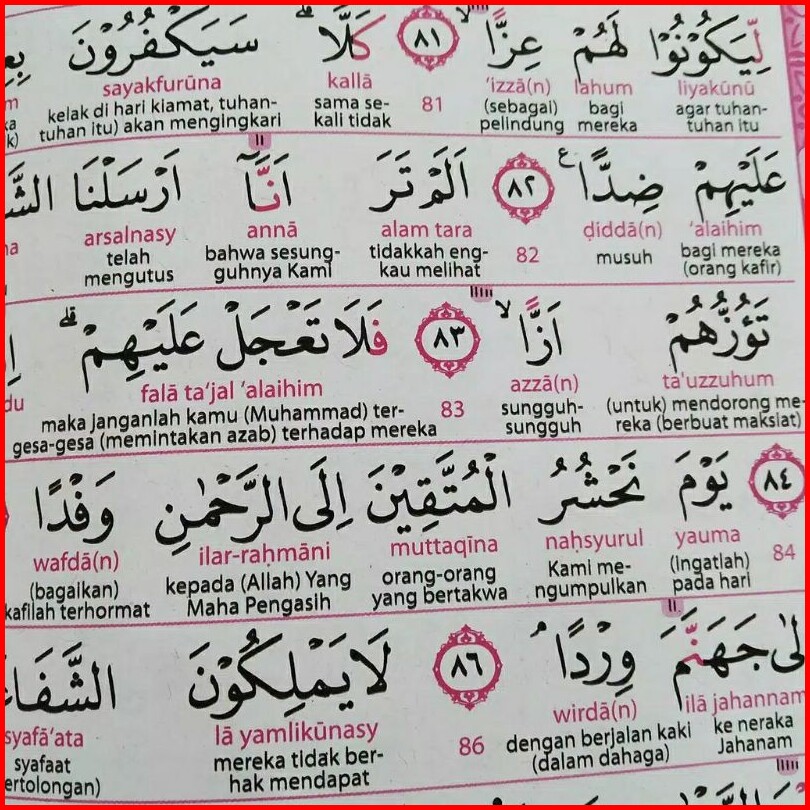 لِّيَكُوْنُوْا لَهُمْ عِزًّا ۙ ٨١ كَلَّا ۗ سَيَكْفُرُوْنَ
liyakūnū lahum 'izzā(n) 81 kallā sayakfurūna
agar tuhan-tuhan itu bagi mereka (sebagai) pelindung sama se-kali tidak kelak di hari kiamat, tuhan-tuhan itu) akan mengingkari
عَلَيْهِمْ ضِدًّا ࣖ ٨٢ اَلَمْ تَرَ اَنَّآ اَرْسَلْنَا
'alaihim ḍiddā(n) 82 alam tara annā arsalnasy
bagi mereka (orang kafir) musuh tidakkah eng-kau melihat bahwa sesung-guhnya Kami telah mengutus
تَؤُزُّهُمْ اَزًّا ۙ ٨٣ فَلَا تَعْجَلْ عَلَيْهِمْ ۗ
ta'uzzuhum azzā(n) 83 falā ta'jal 'alaihim
(untuk) mendorong me-reka (berbuat maksiat) sungguh-sungguh maka janganlah kamu (Muhammad) ter-gesa-gesa (memintakan azab) terhadap mereka
٨٤ يَوْمَ نَحْشُرُ الْمُتَّقِيْنَ اِلَى الرَّحْمٰنِ وَفْدًا
84 yauma naḥsyurul muttaqīna ilar-raḥmāni wafdā(n)
(Ingatlah) pada hari Kami me-ngumpulkan orang-orang yang bertakwa kepada (Allah) Yang Maha Pengasih (bagaikan) kafilah terhormat
جَهَنَّمَ وِرْدًا ۘ ٨٦ لَا يَمْلِكُوْنَ
ilā jahannam wirdā(n) 86 lā yamlikūnasy syafā'ata
ke neraka Jahanam dengan berjalan kaki (dalam dahaga) mereka tidak ber-hak mendapat syafaat